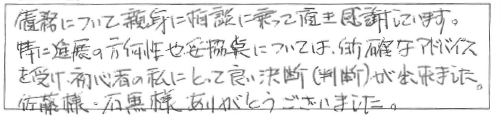 債務について親身に相談に乗って頂き感謝しています。
特に進展の方向性や妥協案については、的確なアドバイス
を受け、初心者の私にとって良い決断(判断)が出来ました。
佐藤様・石黒様ありがとうございました。